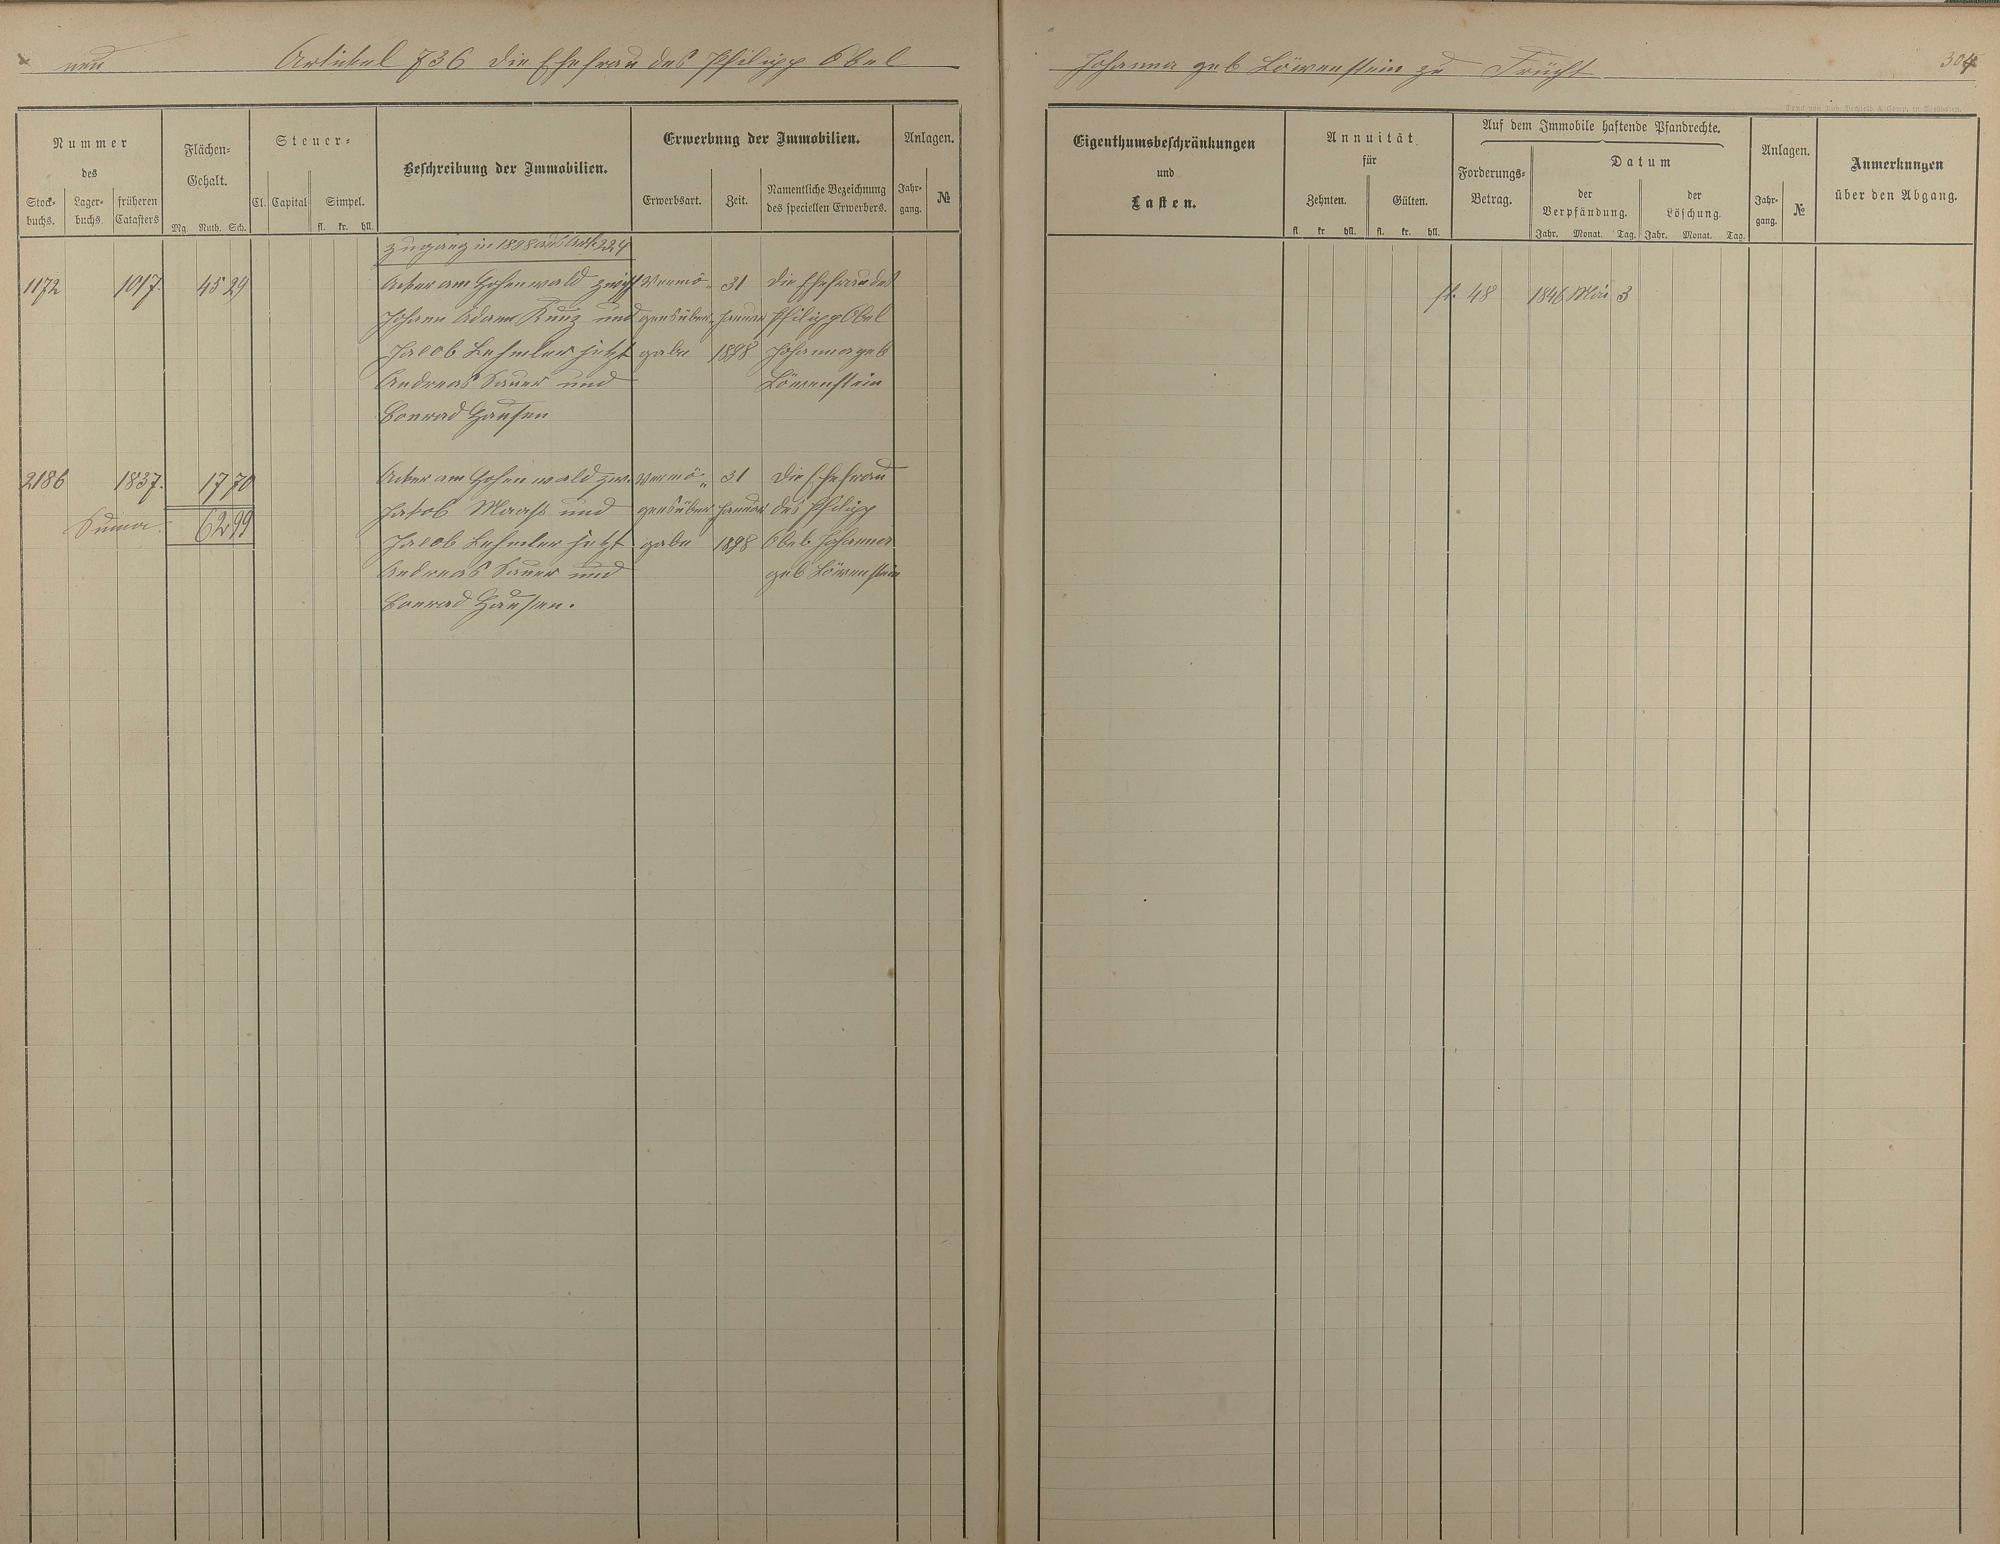 neu Artikel 736 die Ehefrau des Philipp Obel
Johanna geb Löwenstein zu Frücht 304
Druck von Jul. Bechtold & Comp. in Wiesbaden.
Nummer
des
Stock-
buchs.
Lager-
buchs.
früheren
Catasters
Flächen-
Gehalt.
Mg. Ruth. Sch.
Steuer-
Cl. Capital Simpel.
fl. kr. hll.
Beschreibung der Immobilien.
Erwerbung der Immobilien.
Erwerbsart. Zeit. Namentliche Bezeichnung
des speciellen Erwerbers.
Anlagen.
Jahr-
gang.
№
Zugang in 1898 aus Art. 224
1172 1017. 45 29 Acker am Hohenwald zwisch Vermö- 31 die Ehefrau des
Johann Adam Kunz und gensüber- Januar Philipp Obel
Jacob Lehmler jetzt gabe 1898 Johanna geb
Andreas Sauer und Löwenstein
Conrad Hausen
2186 1837. 17 70 Acker am Hohenwald zw. Vermö- 31 die Ehefrau
Suma. 62 99 Jakob Maass und gensüber Januar des Philipp
Jacob Lehmler jetzt gabe 1898 Obel Johanna
Andreas Sauer und geb Löwenstein
Conrad Hausen.
Eigenthumsbeschränkungen
und
Lasten.
Annuität
für
Zehnten. Gülten.
fl. kr. hll. fl. kr. hll.
Auf dem Immobile haftende Pfandrechte.
Forderungs-
Betrag.
Datum
der
Verpfändung.
Jahr. Monat. Tag.
der
Löschung.
Jahr. Monat. Tag.
Anlagen.
Jahr-
gang.
№
Anmerkungen
über den Abgang.
fl. 48 1846 Mai 3